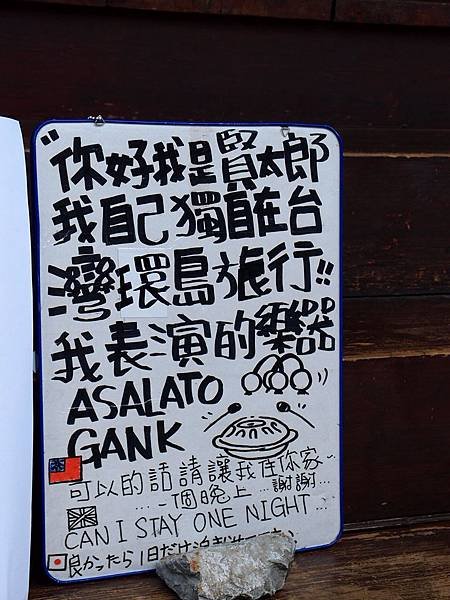 "你好我是賢太郎
我自己獨自在台
灣環島旅行!!
我表演的樂器
ASALATO
GANK
可以的話請讓我住你家~
...一個晚上...謝謝...
CAN I STAY ONE NIGHT...
良かったら1日だけ泊